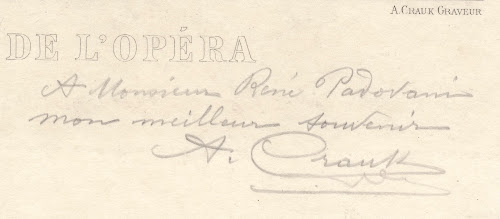 A. Crauk Graveur
DE L'OPÉRA
A Monsieur René Padovani
mon meilleur souvenir
A. Crauk